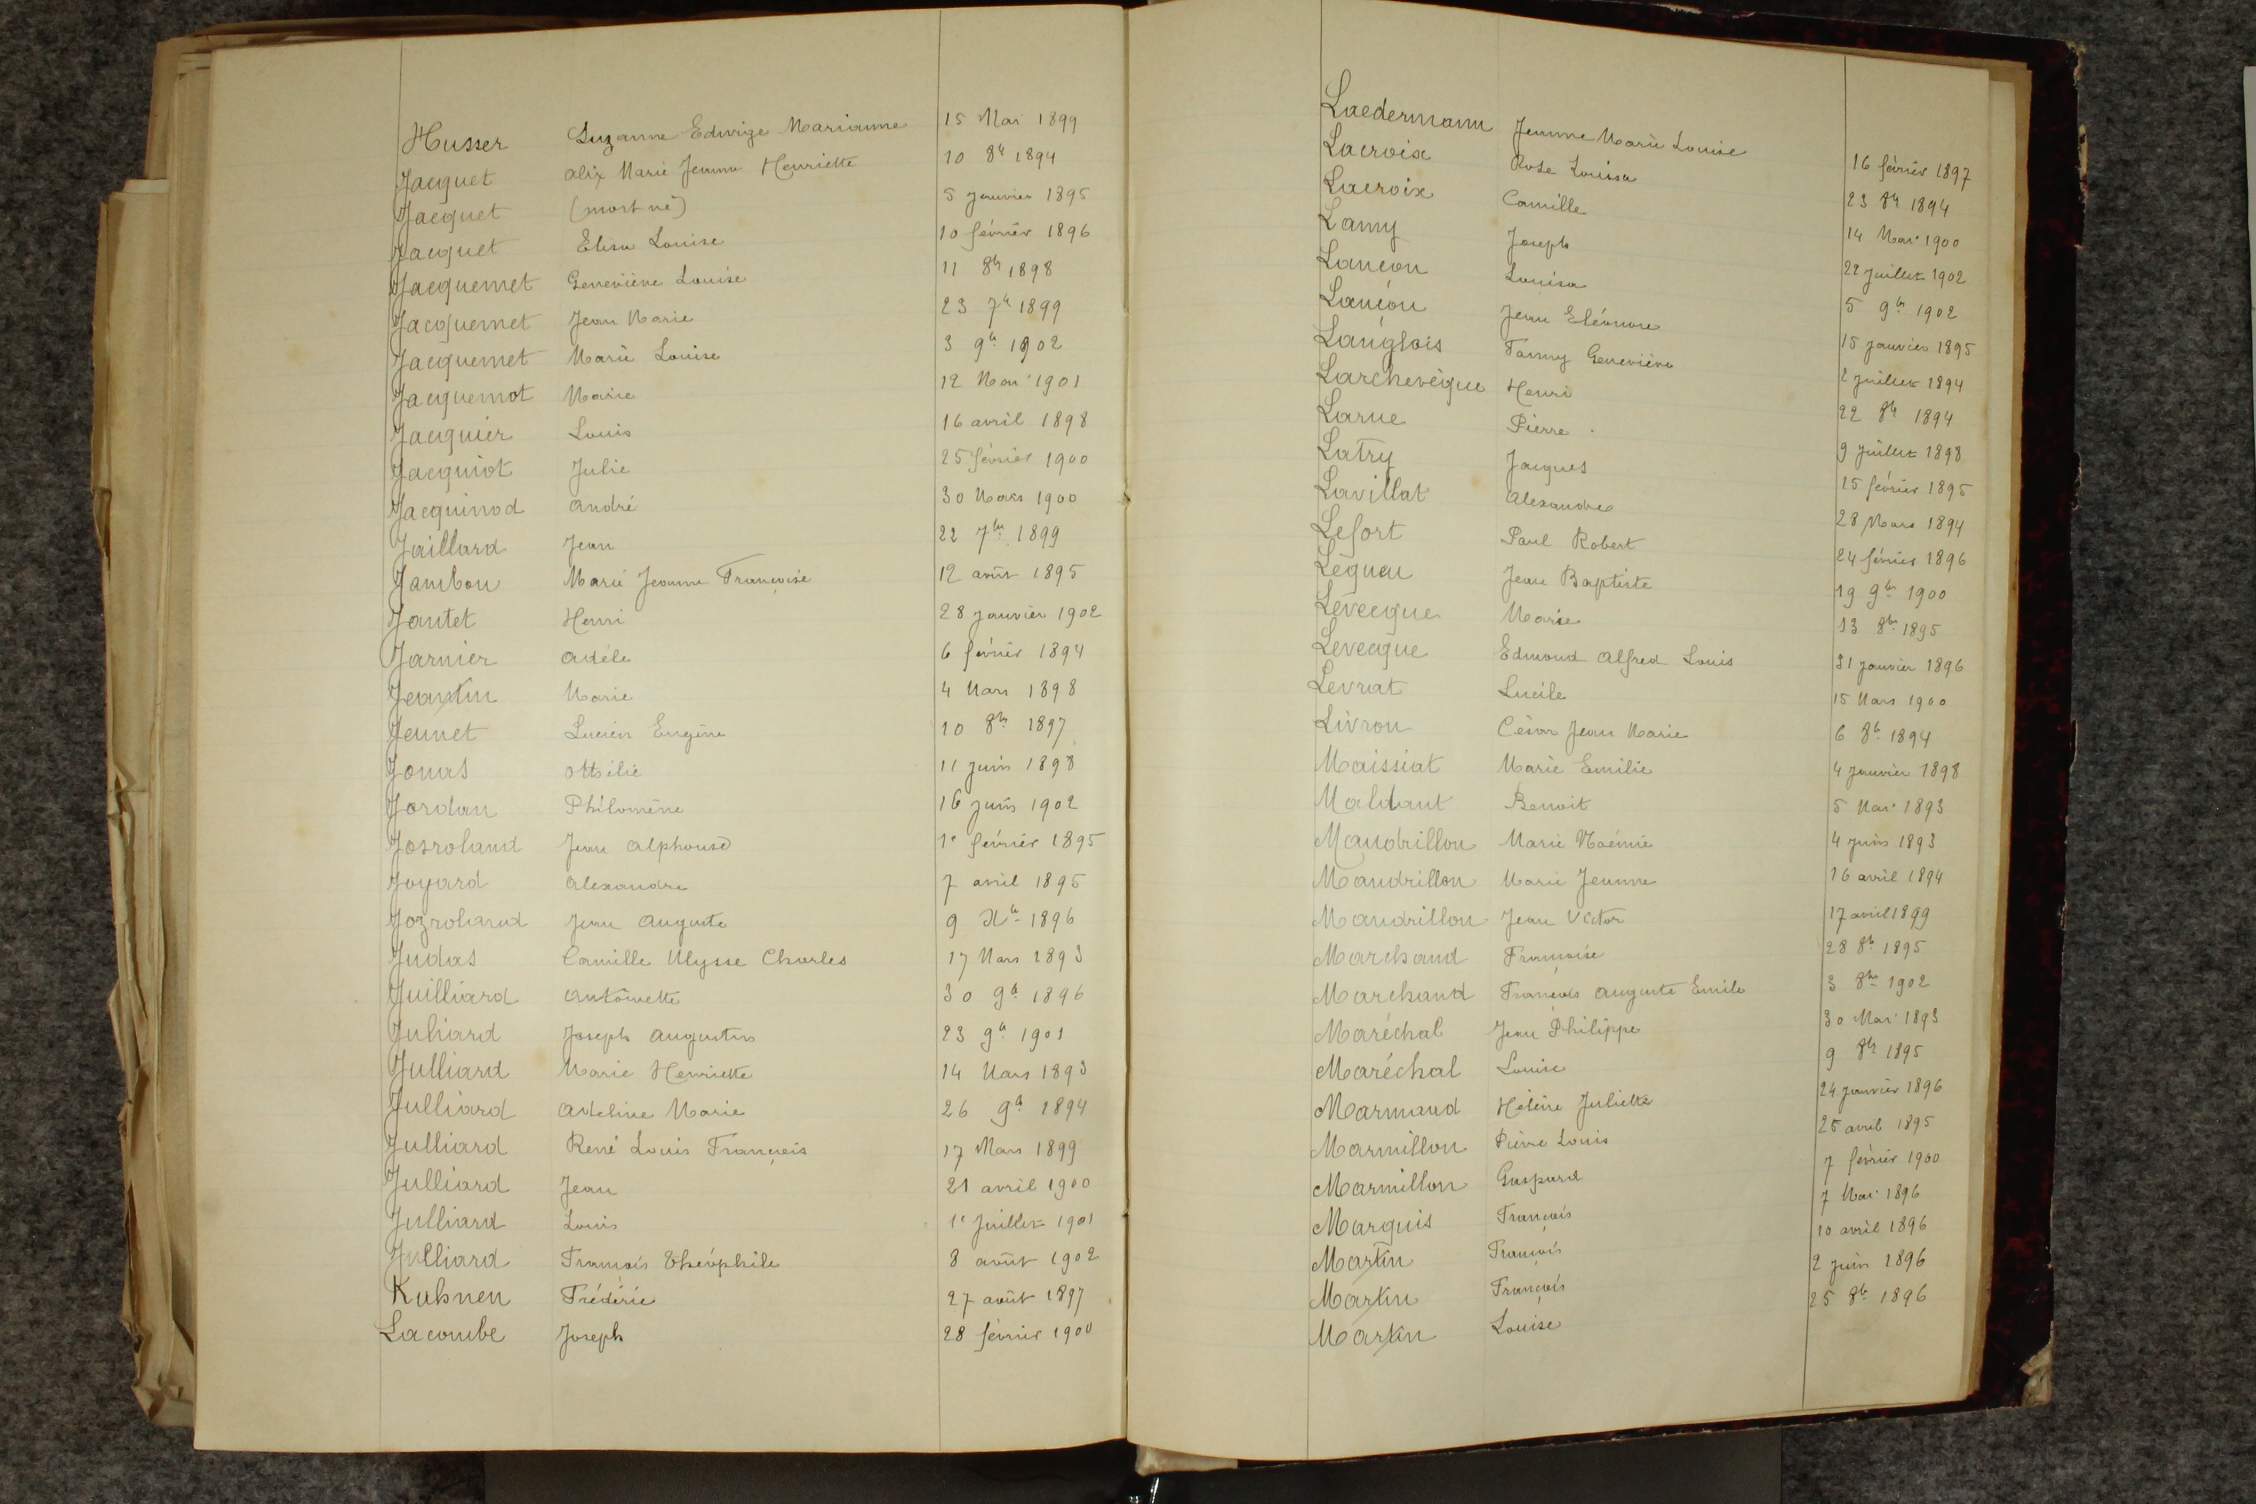 Husser Suzanne Edwige Marianne 15 Mai 1899
Jacquet Alix Marie Jeanne Henriette 10 8bre 1894
Jacquet (mort né) 5 janvier 1895
Jacquet Elisa Louise 10 février 1896
Jacquemet Geneviève Louise 11 8bre 1898
Jacquemet Jean Marie 23 7bre 1899
Jacquemet Marie Louise 3 9bre 1902
Jacquemot Marie 12 Mai 1901
Jacquier Louis 16 avril 1898
Jacquiot Julie 25 février 1900
Jacquinod André 30 Mars 1900
Jaillard Jean 22 7bre 1899
Jambon Marie Jeanne Françoise 12 août 1895
Jantet Henri 28 janvier 1902
Jarnier Adèle 6 février 1894
Jeantin Marie 4 Mars 1898
Jeunet Lucien Eugène 10 8bre 1897
Jonas Ottilie 11 juin 1898
Jordan Philomène 16 juin 1902
Josroland Jean Alphonse 1er février 1895
Joyard Alexandre 7 avril 1895
Jozroland Jean Auguste 9 Xbre 1896
Judas Camille Ulysse Charles 17 Mars 1893
Juilliard Antoinette 30 9bre 1896
Juliard Joseph Augustin 23 9bre 1901
Julliard Marie Henriette 14 Mars 1893
Julliard Adeline Marie 26 9bre 1894
Julliard René Louis François 17 Mars 1899
Julliard Jean 21 avril 1900
Julliard Louis 1er Juillet 1901
Julliard François Théophile 8 août 1902
Kuhnen Frédéric 27 août 1897
Lacombe Joseph 28 février 1900
Laedermann Jeanne Marie Louise 16 février 1897
Lacroix Rose Louisa 23 8bre 1894
Lacroix Camille 14 Mai 1900
Lamy Joseph 22 juillet 1902
Lançon Louisa 5 9bre 1902
Lançon Jean Eléonore 15 janvier 1895
Langlois Fanny Geneviève 2 juillet 1894
Larchevêque Henri 22 8bre 1894
Larue Pierre 9 juillet 1898
Latry Jacques 15 février 1895
Lavillat Alexandre 28 Mars 1894
Lefort Paul Robert 24 février 1896
Lequeu Jean Baptiste 19 9bre 1900
Levecque Marie 13 8bre 1895
Levecque Edmond Alfred Louis 31 janvier 1896
Levrat Lucile 15 Mars 1900
Livron César Jean Marie 6 8bre 1894
Maissiat Marie Emilie 4 janvier 1898
Maldant Benoit 5 Mai 1893
Mandrillon Marie Noémie 4 juin 1893
Mandrillon Marie Jeanne 16 avril 1894
Mandrillon Jean Victor 17 avril 1899
Marchand Françoise 28 8bre 1895
Marchand François Auguste Emile 3 8bre 1902
Maréchal Jean Philippe 30 Mai 1893
Maréchal Louise 9 8bre 1895
Marmand Hélène Juliette 24 janvier 1896
Marmillon Pierre Louis 25 avril 1895
Marmillon Gaspard 7 février 1900
Marquis François 7 Mai 1896
Martin François 10 avril 1896
Martin François 2 juin 1896
Martin Louise 25 8bre 1896